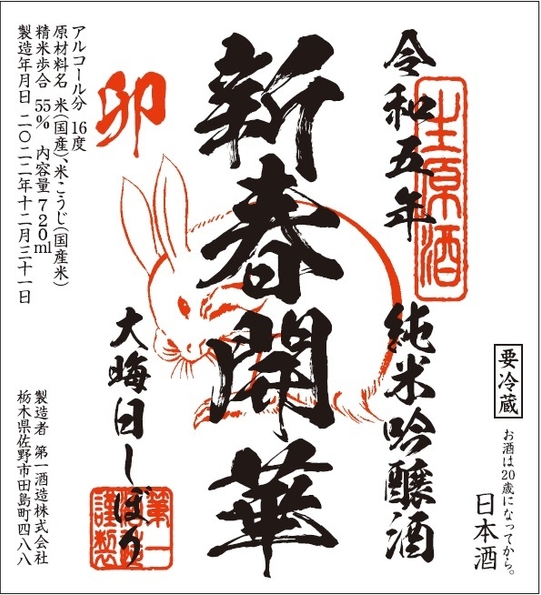 令和五年
生原酒
純米吟醸酒
要冷蔵
お酒は20歳になってから。
日本酒
新春開華
卯
大晦日しぼり
第一
謹製
アルコール分 16度
原材料名 米(国産)、米こうじ(国産米)
精米歩合 55% 内容量 720ml
製造年月日 二〇二二年十二月三十一日
製造者 第一酒造株式会社
栃木県佐野市田島町四八八